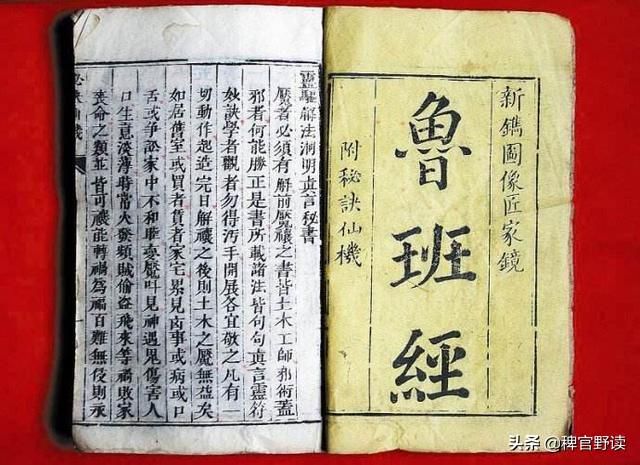 新鐫圖像匠家鏡
魯班經
附秘訣仙機
靈驅解法洞明真言秘書
魘者必須有解前魘禳之書皆土木工師邪術蓋
邪者何能勝正是書所載諸法皆句句真言靈符
妙訣學者觀者勿得污手開展各宜敬之凡有一
切動作起造完日解禳之後則土木之魘無益矣
如居舊室或買者賃者家宅累見凶事或病或口
舌或爭訟家中不和睡魘叶見神遇鬼傷害人
口生意淡薄時常火頻賊偷盜飛來等禍敗家
喪命之類並皆可禳能轉禍為福百難無侵則永
头条 @稗官野读